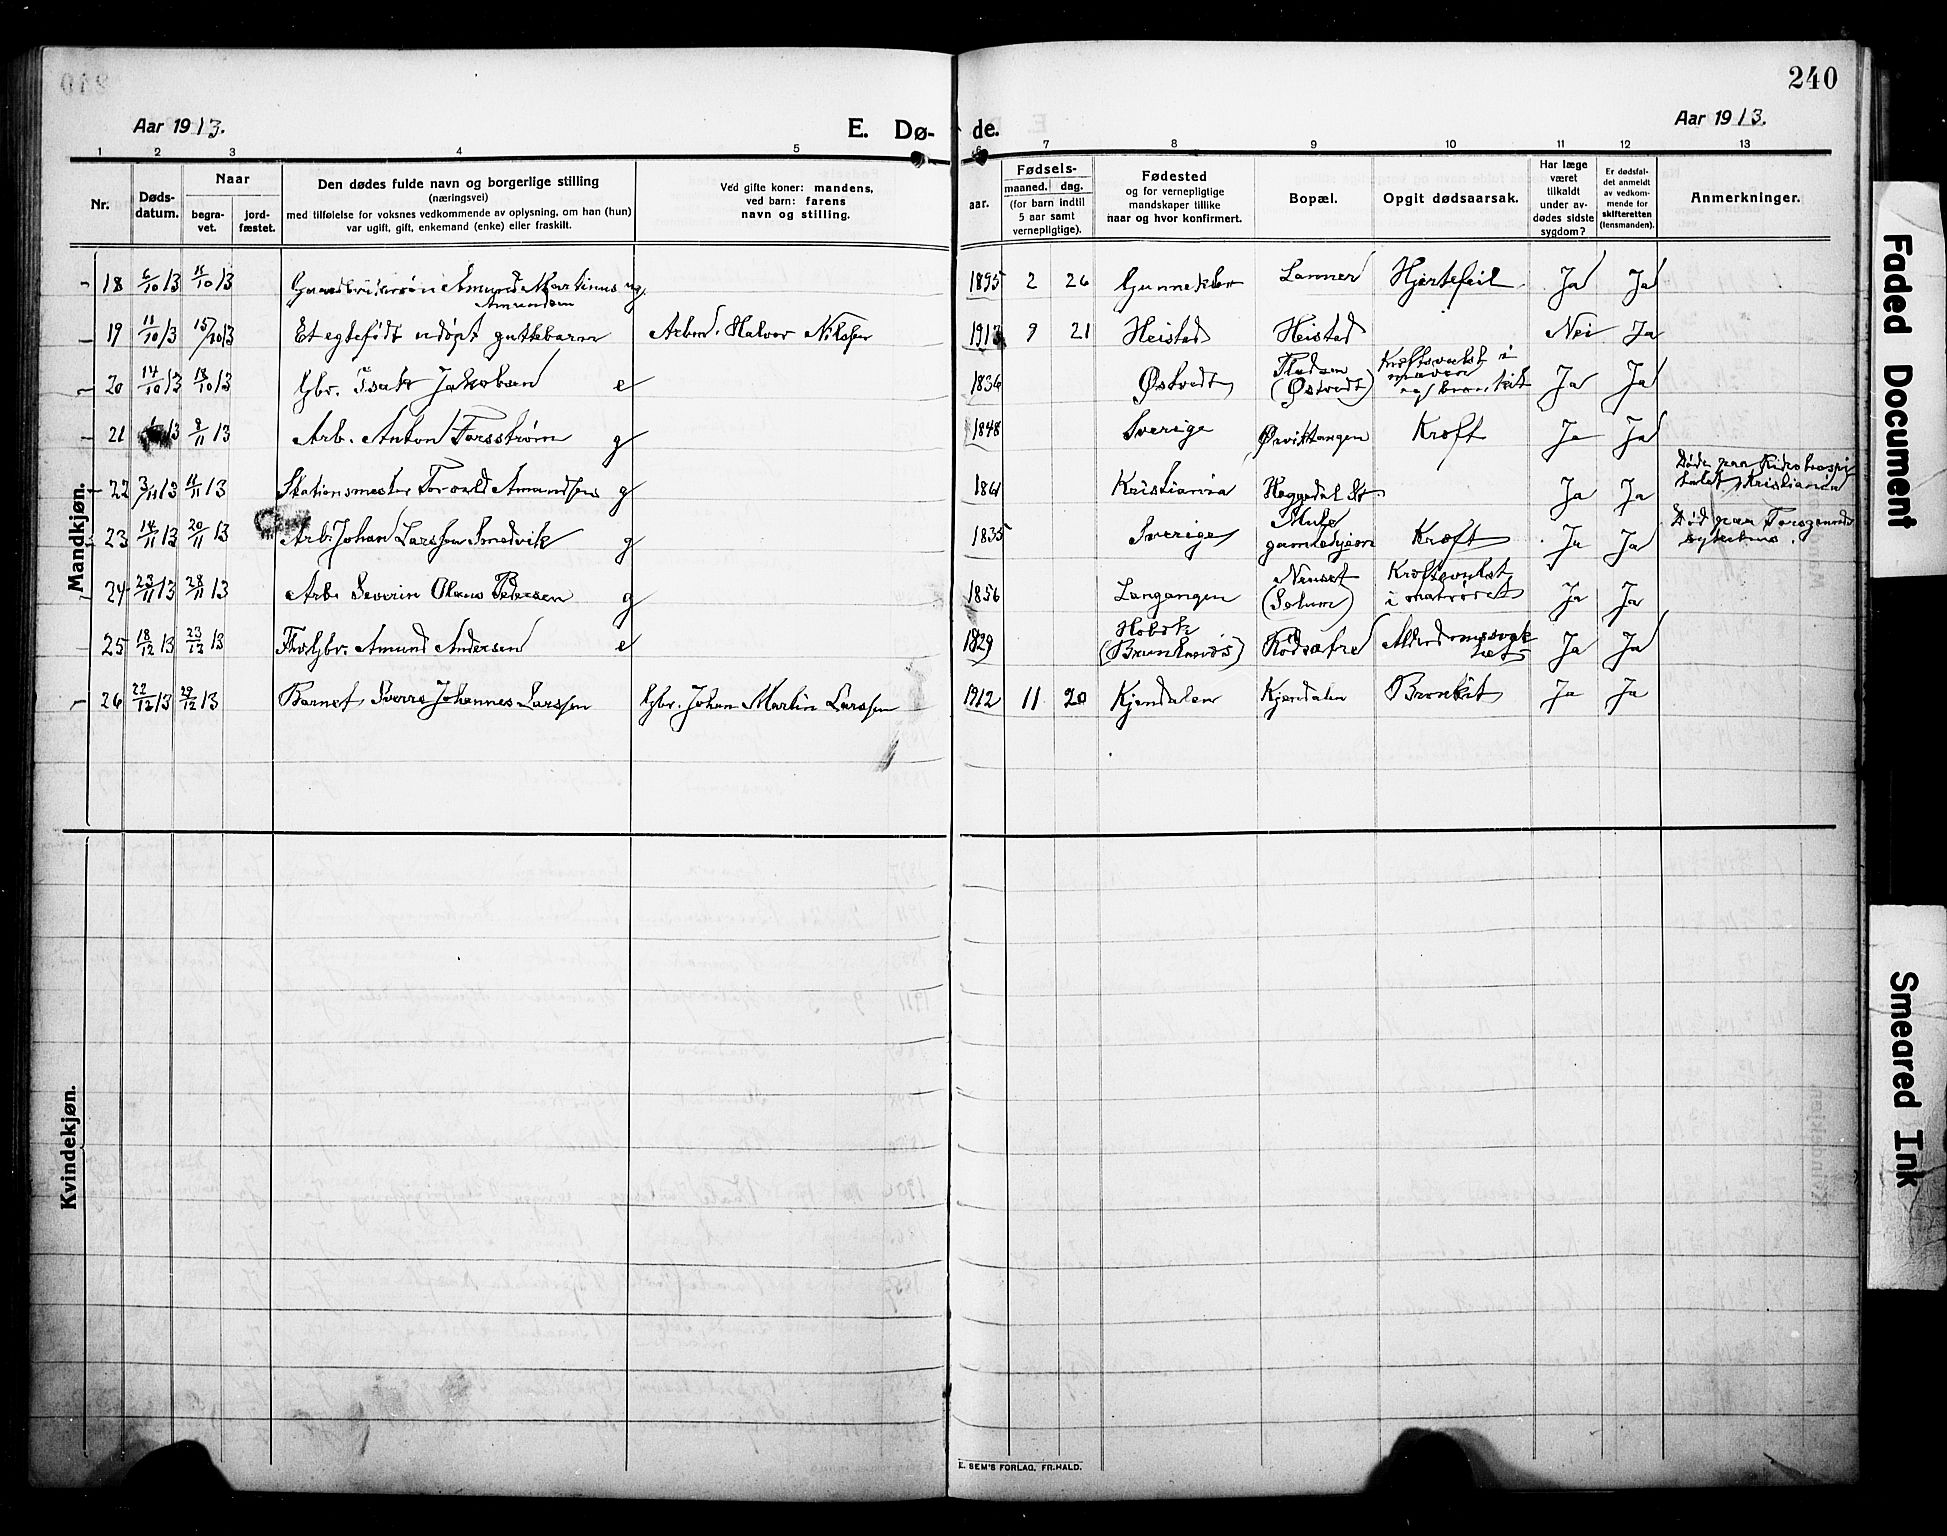 240
Aar 1913.
E. Dø-
de.
Aar 1913.
1 2 3 4 5 6 7 8 9 10 11 12 13
Nr.
Døds-
datum.
Naar
begra-
vet.
jord-
fæstet.
Den dødes fulde navn og borgerlige stilling
(næringsvei)
med tilføielse for voksnes vedkommende av oplysning, om han (hun)
var ugift, gift, enkemand (enke) eller fraskilt.
Ved gifte koner: mandens,
ved barn: farens
navn og stilling.
Fødsels-
aar.
maaned. dag.
(for barn indtil
5 aar samt
vernepligtige).
Fødested
og for vernepligtige
mandskaper tillike
naar og hvor konfirmert.
Bopæl.
Opgit dødsaarsak.
Har læge
været
tilkaldt
under av-
dødes sidste
sygdom?
Er dødsfal-
det anmeldt
av vedkom-
mende for
skifteretten
(lensmanden).
Anmerkninger.
Mandkjøn.
18 6/10 13 11/10 13 Gaardbrukersøn Amund Martinus ug. 1895 2 26 Gunneklev Lanner Hjertefeil Ja Ja
Amundsen
19 11/10 13 15/10 13 Et egtefødt udøpt guttebarn Arbm. Halvor Nilssen 1913 9 21 Heistad Heistad Nei Ja
20 14/10 13 18/10 13 Gbr. Isak Jakobsen e 1836 Østvedt (Østvedt) Kræftsvulst i maven og bronkit Ja Ja
21 13 8/11 13 Arb. Anton Forsstrøm g 1848 Sverige Ørviktangen Kræft Ja Ja
22 3/11 13 11/11 13 Stationsmester Torvald Amundsen g 1861 Kristiania Heggedal St. Ja Ja Døde paa Rikshospi-
talet, Kristiania
23 14/11 13 20/11 13 Arb. Johan Larssen Smedvik g 1835 Sverige Mule gamlehjem Kræft Ja Ja Død paa
24 23/11 13 28/11 13 Arb. Severin Olaus Petersen g 1856 Langangen Nenset (Solum) Kræftsvulst i matrøret Ja Ja
25 18/12 13 23/12 13 Fhv. Gbr. Amund Andersen e 1829 (Brunlanæs) Rødsætre Alderdomssvak-
het Ja Ja
26 22/12 13 29/12 13 Barnet Sverre Johannes Larssen Gbr. Johan Martin Larssen 1912 11 20 Kjendalen Kjendalen Bronkit Ja Ja
Kvindekjøn.
E. SEM'S FORLAG, FR.HALD.
Faded Document
Smeared Ink